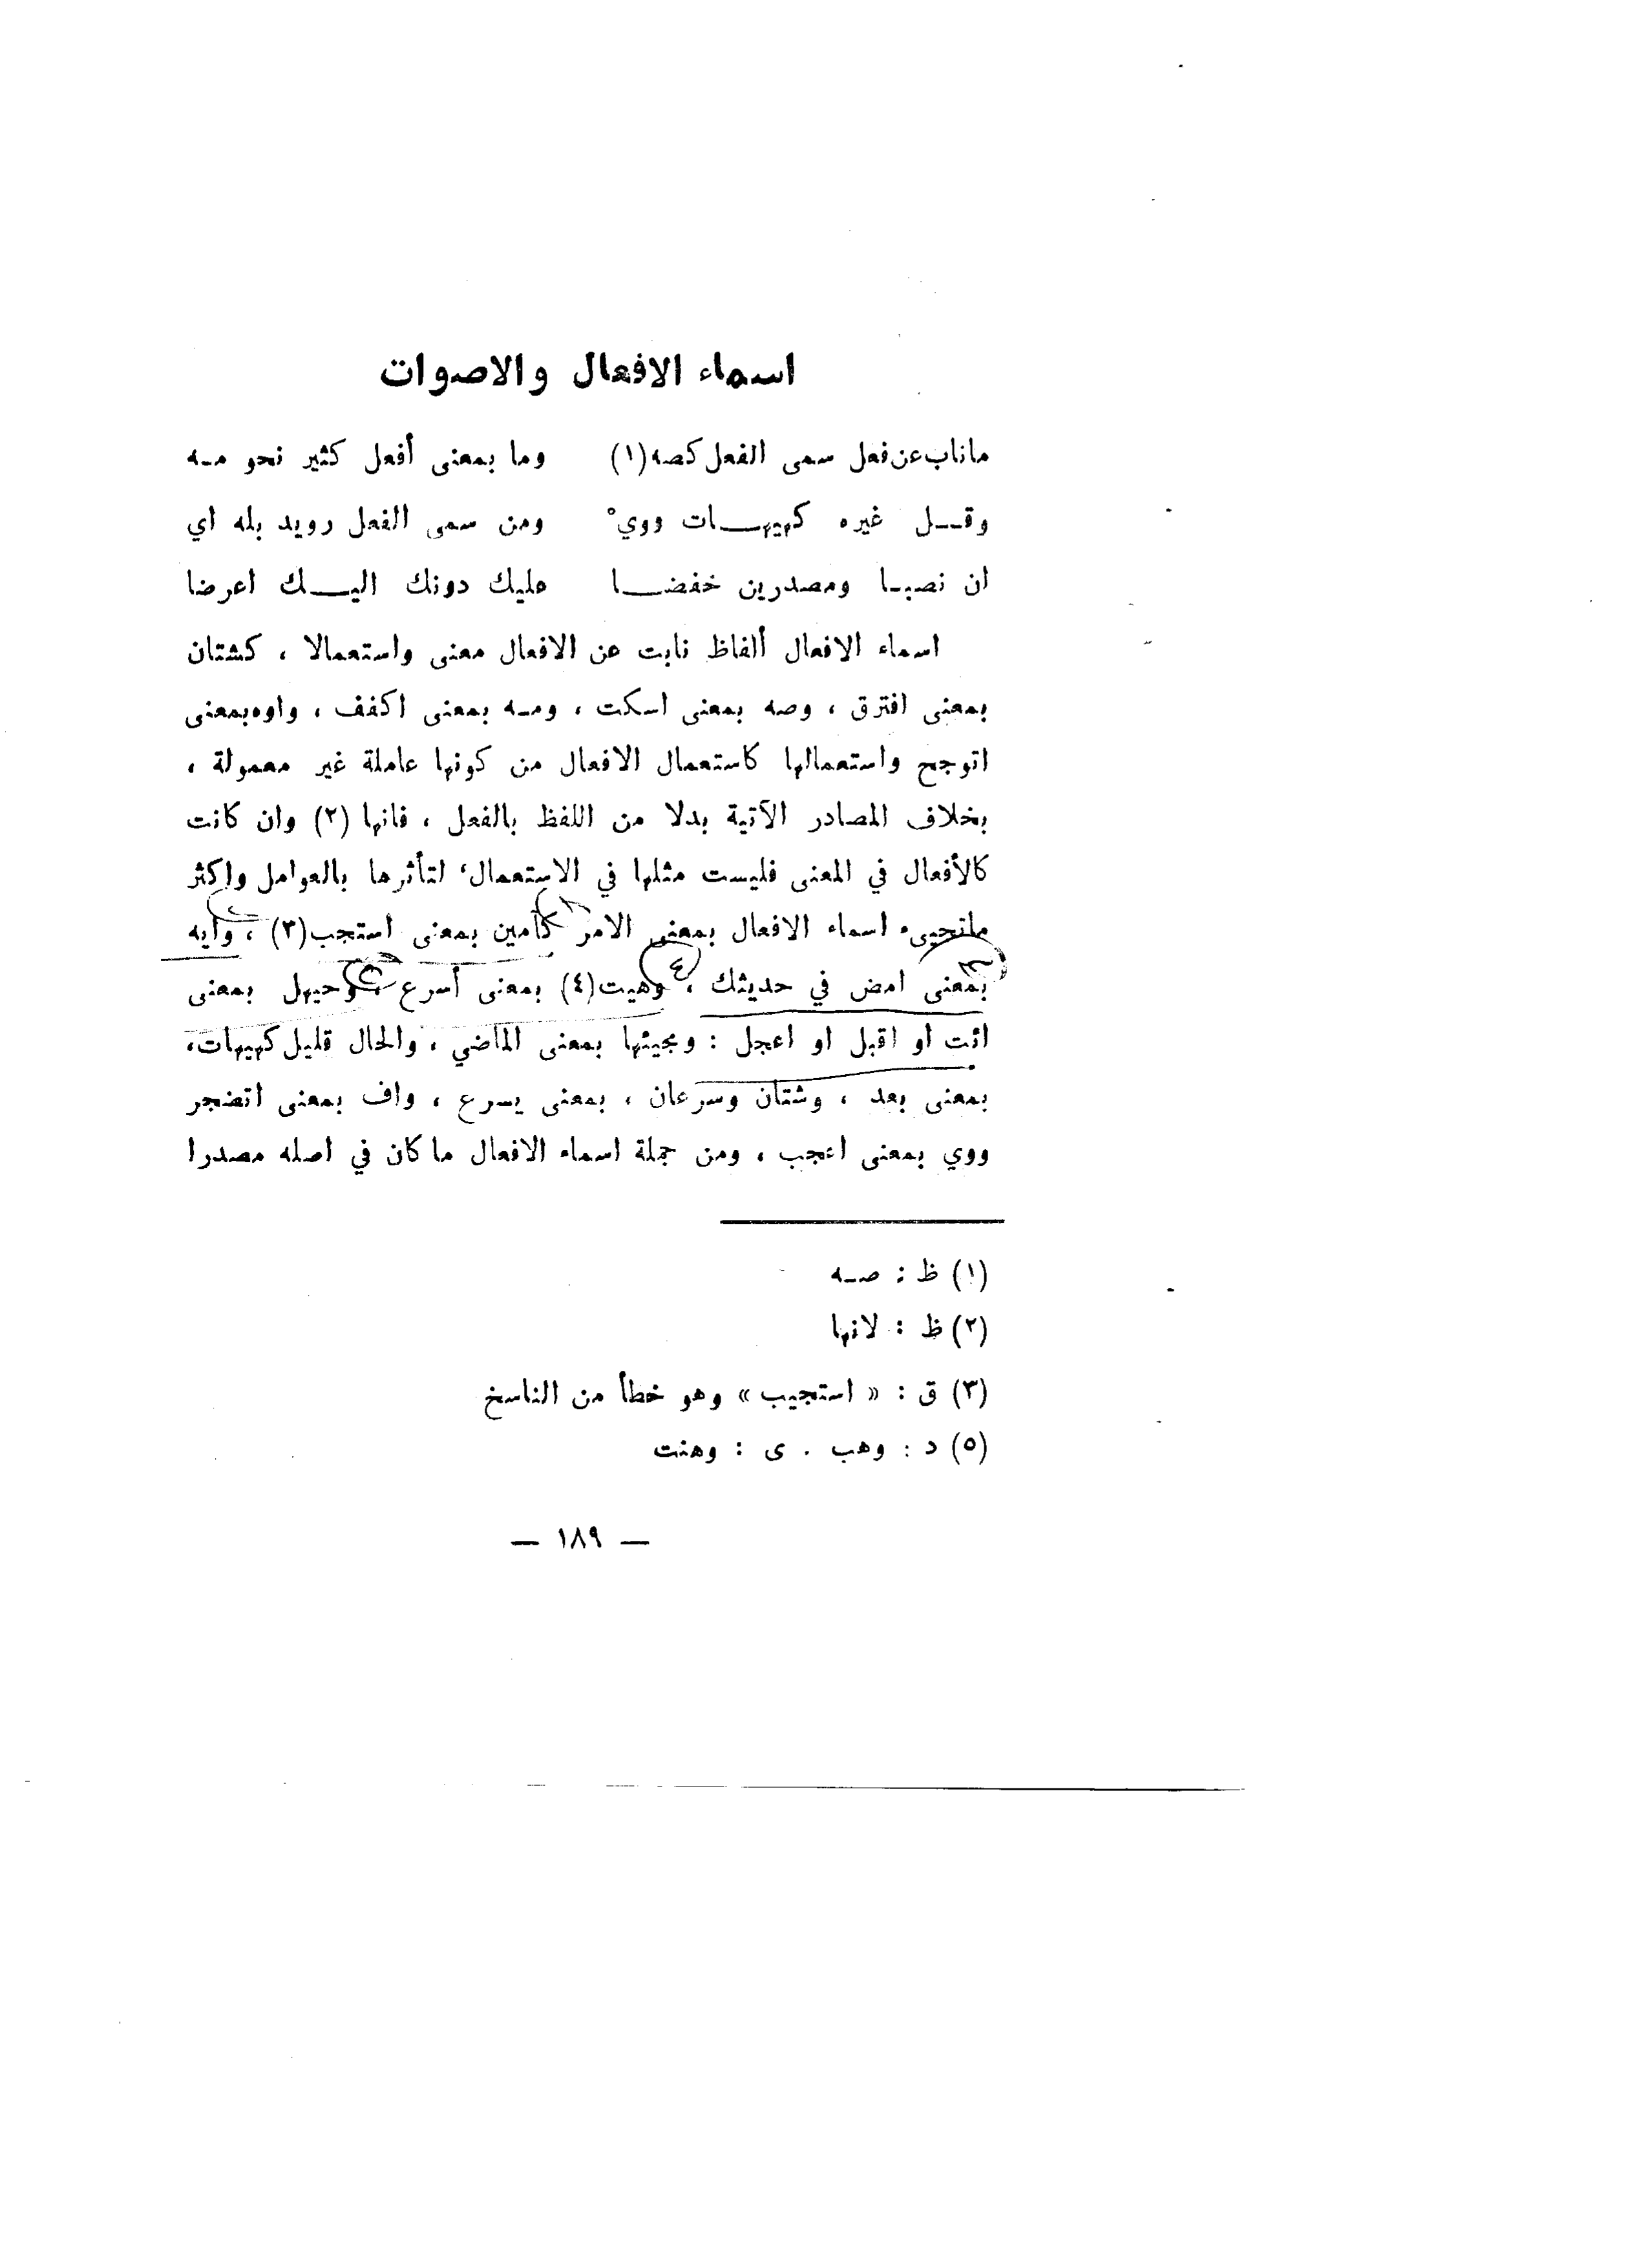 اسماء الافعال والاصوات
ماناب عن فعل سمى الفعل كصه (١) وما بمعنى أفعل كثير نحو مـه
وقـــل غيره كهيهـــات ووي° ومن سمى الفعل رويد بله اي
ان نصبـا ومصدرين خفضـــا عليك دونك اليـــك اعرضا
اسماء الافعال ألفاظ نابت عن الافعال معنى واستعمالا ، كشتان
بمعنى افترق ، وصه بمعنى اسكت ، ومـه بمعنى اكفف ، واوه بمعنى
اتوجح واستعمالها كاستعمال الافعال من كونها عاملة غير معمولة ،
بخلاف المصادر الآتية بدلا من اللفظ بالفعل ، فانها (٢) وان كانت
كالأفعال في المعنى فليست مثلها في الاستعمال، لتأثرها بالعوامل واكثر
ماتجيىء اسماء الافعال بمعنى الامر كآمين بمعنى استجب (٣) ، وايه
بمعنى امض في حديثك ، وهيت (٤) بمعنى أسرع ، وحيهل بمعنى
ائت او اقبل او اعجل : ومجيئها بمعنى الماضي ، والحال قليل كهيهات،
بمعنى بعد ، وشتان وسرعان ، بمعنى يسرع ، واف بمعنى اتضجر
ووي بمعنى اعجب ، ومن جملة اسماء الافعال ما كان في اصله مصدرا
(١) ظ : صـه
(٢) ظ : لانها
(٣) ق : « استجيب » وهو خطأ من الناسخ
(٥) د : وهب . ى : وهنت
— ١٨٩ —